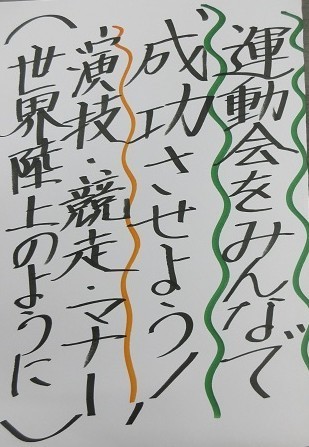 運動会をみんなで
成功させよう!
〝演技・競走・マナー〟
(世界陸上のように)